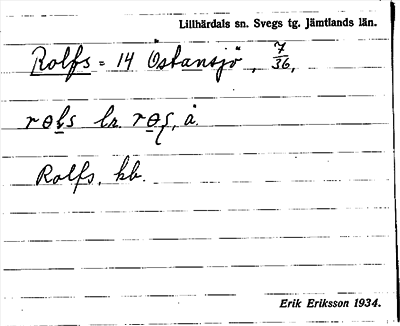 Lillhärdals sn. Svegs tg. Jämtlands län.
Rolfs = 14 Östansjö, 7/36,
å.
Rolfs, kb.
Erik Eriksson 1934.